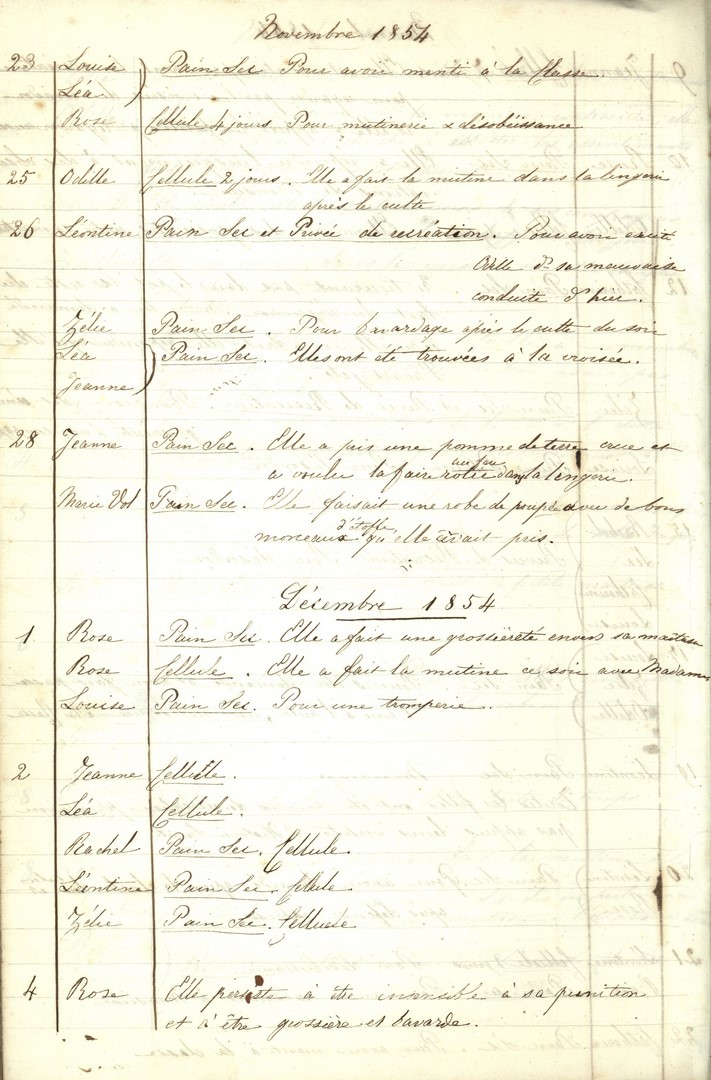 Novembre 1854
23 Louise Pain Sec Pour avoir menti à la Classe.
Léa
Rose Cellule 4 jours Pour mutinerie & désobéissance
25 Odille Cellule 2 jours. Elle a fait la mutine dans la lingerie
après le culte
26 Léontine Pain Sec et Privée de recréation. Pour avoir excité
Odille d sa mauvaise
conduite d'hier.
Zélie Pain Sec. Pour bavardage après le culte du soir
Léa Pain Sec. Elles ont été trouvées à la croisée.
Jeanne
28 Jeanne Pain Sec. Elle a pris une pomme de terre crue et
a voulu la faire rotir au feu dans la lingerie.
Marie Vol Pain Sec. Elle faisait une robe de poupée avec de bons
morceaux d'étoffe qu'elle avait pris.
Décembre 1854
1 Rose Pain Sec. Elle a fait une grossiéreté envers sa maitresse
Rose Cellule. Elle a fait la mutine ce soir avec Madame
Louise Pain Sec. Pour une tromperie.
2 Jeanne Cellule.
Léa Cellule.
Rachel Pain Sec. Cellule
Léontine Pain Sec. Cellule
Zélie Pain Sec. Cellule
4 Rose Elle persiste à être insensible à sa punition
et à être grossière et bavarde.